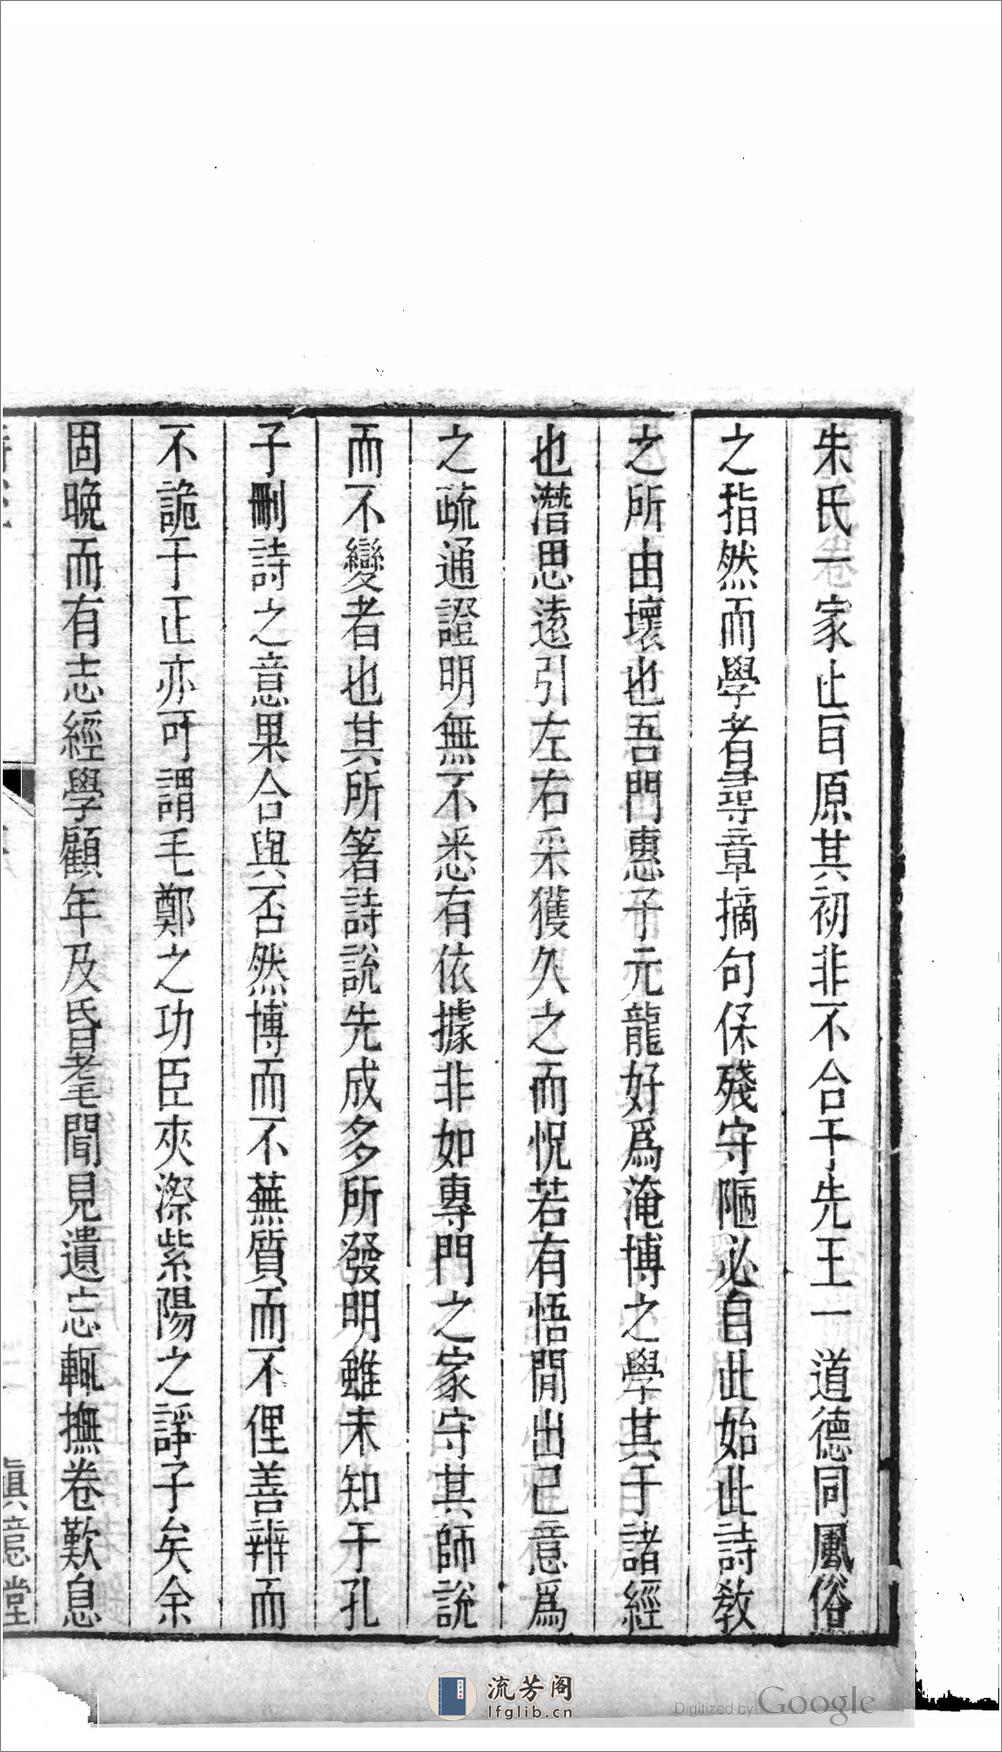 朱氏一家止目原其初非不合于先王一道德同風俗
之指然而學者尋章摘句保殘守陋必自此始此詩敎
之所由壞也吾門惠子元龍好爲淹博之學其于諸經
也潛思遠引左右采獲久之而怳若有悟閒出已意爲
之疏通證明無不悉有依據非如專門之家守其師說
而不變者也其所箸詩說先成多所發明雖未知于孔
子刪詩之意果合與否然博而不蕪質而不俚善辨而
不詭于正亦可謂毛鄭之功臣夾漈紫陽之諍子矣余
固晚而有志經學顧年及昏耄聞見遺忘輒撫卷歎息
眞意堂
流芳阁
lfglib.cn
Digitized by Google